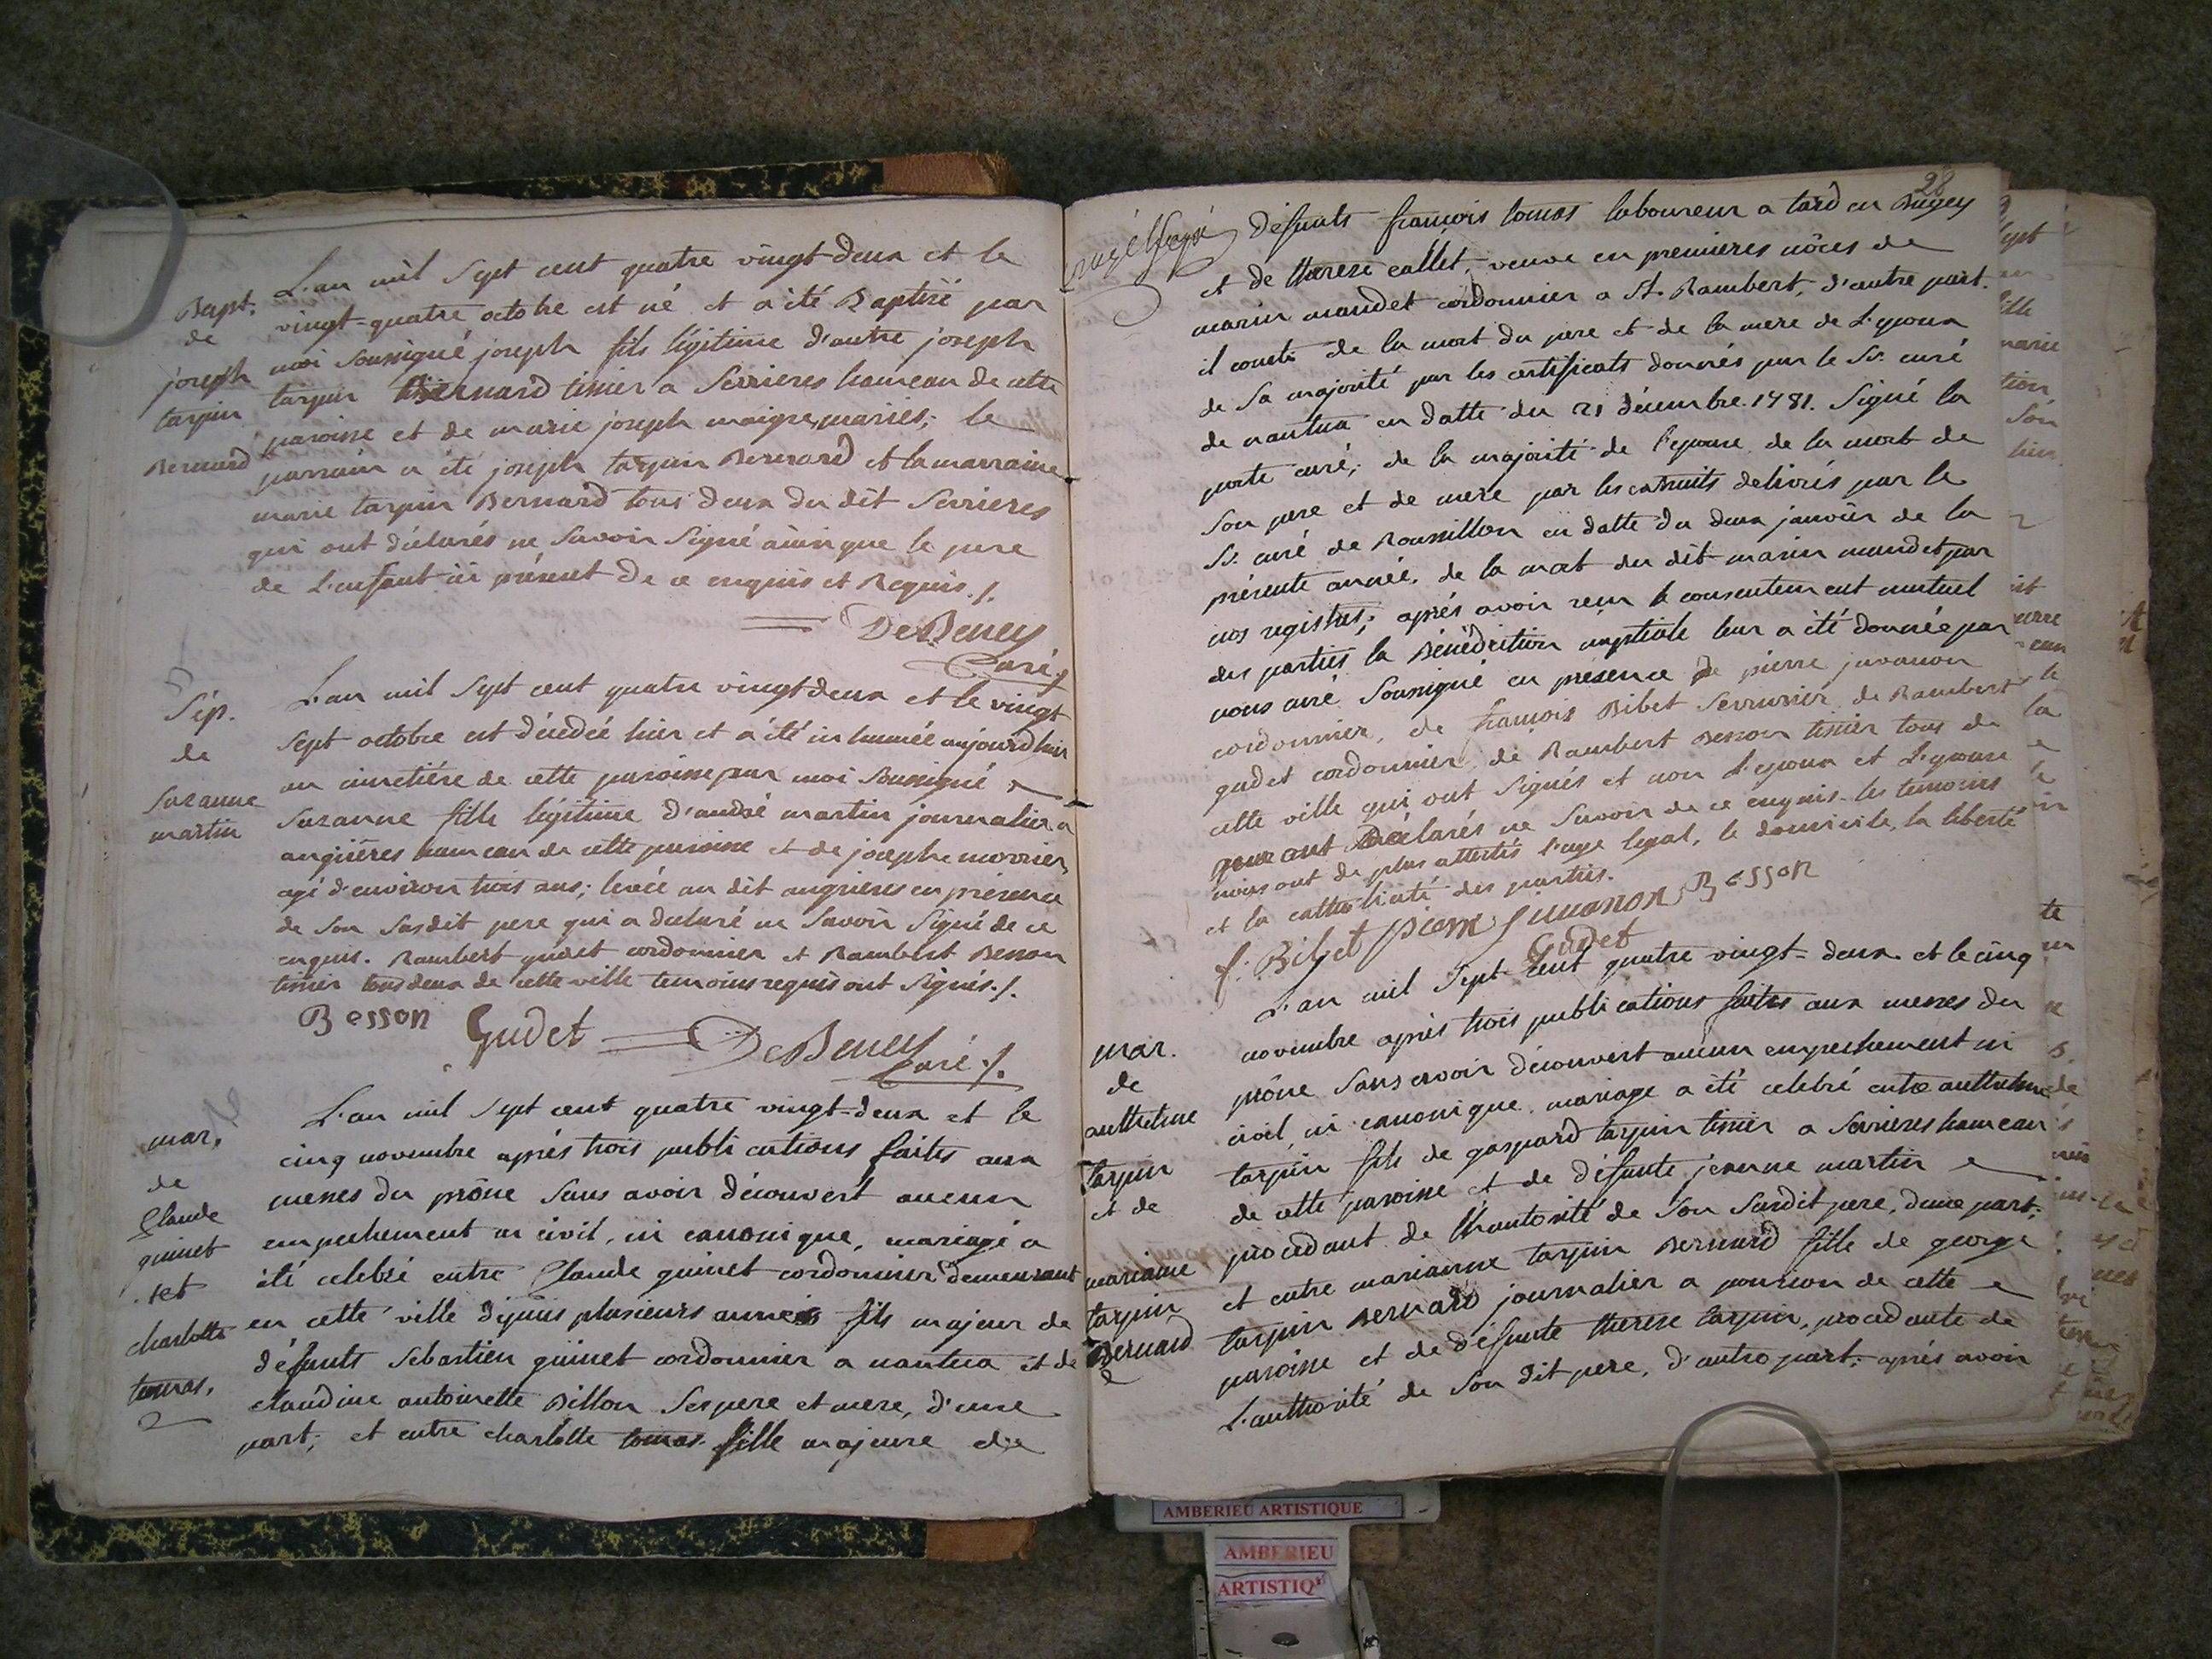 Bapt.
de
joseph
tarpin
Bernard
L'an mil Sept cent quatre vingt-deux et le
vingt-quatre octobre est né et a été Baptisé par
moi Soussigné joseph fils légitime d'autre joseph
tarpin Bernard tissier a Serrieres hameau de cette
paroisse et de marie joseph maigre, mariés; le
parrain a été joseph tarpin Bernard et la marraine
marie tarpin Bernard tous deux du dit Serrieres
qui ont déclarés ne Savoir Signé ainsi que le pere
de L'enfant ici présent de ce enquis et Requis ./.
DeBeney
Curé
Sép.
de
Suzanne
martin
L'an mil Sept cent quatre vingt deux et le vingt
Sept octobre est décédée hier et a été inhumée aujourd'huy
au cimetiére de cette paroisse par moi Soussigné
Suzanne fille légitime d'andré martin journalier a
angriéres hameau de cette paroisse et de josephe morrier
agé d'environ trois ans; levée au dit angrieres en présence
de Son Susdit pere qui a declaré ne Savoir Signé de ce
enquis. Rambert gudet cordonnier et Rambert Besson
tissier tous deux de cette ville temoins requis ont Signés ./.
Besson Gudet DeBeney
Curé ./.
mar.
de
Claude
guinet
et
charlotte
tomas.
L'an mil Sept cent quatre vingt-deux et le
cinq novembre aprés trois publications faites aux
messes du prône Sans avoir découvert aucun
empechement ni civil, ni canonique, mariage a
été celebré entre Claude guinet cordonnier demeurant
en cette ville depuis plusieurs années fils majeur de
défunts Sebastien guinet cordonnier a nantua et de
claudine antoinette Billon Ses pere et mere, d'une
part; et entre charlotte tomas fille majeure de
28
défunts françois tomas laboureur a tard en Bugey
et de therese callet, veuve en premieres nôces de
marin mandet cordonnier a St. Rambert, d'autre part.
il conste de la mort du pere et de la mere de L'epoux
de Sa majorité par les certificats donnés par le Sr. curé
de nantua en datte du 21 décembre 1781. Signé la
porte curé; de la majorité de l'epouse de la mort de
Son pere et de mere par les extraits delivrés par le
Sr. curé de Roussillon en datte du deux janvier de la
présente année, de la mort du dit marin mandet par
nos registres; aprés avoir reçu le consentement mutuel
des parties la Bénédiction nuptiale leur a été donnée par
nous curé Soussigné en présence de pierre juvanon
cordonnier, de françois Bibet Serrurier, de Rambert
gudet cordonnier, de Rambert Besson tissier tous de
cette ville qui ont Signés et non L'epoux et L'epouse
pour ont déclarés ne Savoir de ce enquis. les temoins
nous ont de plus attestés l'age legal, le domicile, la liberté
et la catholicité des parties.
f. Bibet pierre Juuanon Besson
Gudet
mar.
de
anthelme
tarpin
et de
marianne
tarpin
Bernard
L'an mil Sept cent quatre vingt-deux et le cinq
novembre aprés trois publications faites aux messes du
prône Sans avoir découvert aucun empechement ni
civil, ni canonique, mariage a été celebré entre anthelme
tarpin fils de gaspard tarpin tissier a Serrieres hameau
de cette paroisse et de défunte jeanne martin
procedant de l'hautorité de Son Susdit pere, d'une part;
et entre marianne tarpin Bernard fille de george
tarpin Bernard journalier a de cette
paroisse et de défunte therese tarpin, procedante de
L'authorité de Son dit pere, d'autre part; aprés avoir
AMBERIEU ARTISTIQUE
AMBERIEU
ARTISTIQ